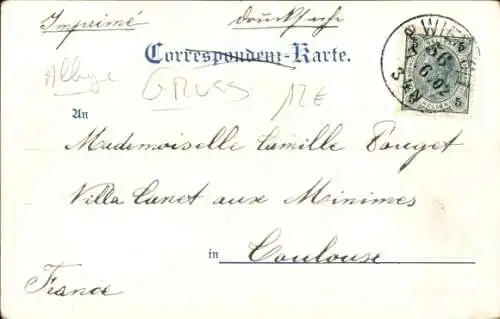 Imprimé Drucksache
Correspondenz-Karte.
GRUSS 12€
An
Mademoiselle Camille Pouget
Villa Canet aux Minimes
in Toulouse
France
WIEN
6.02
5